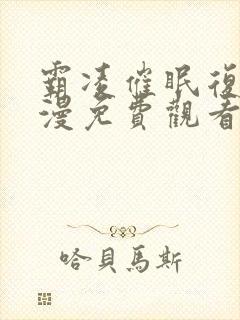 霸凌催眠復
漫免費觀看
哈貝馬斯